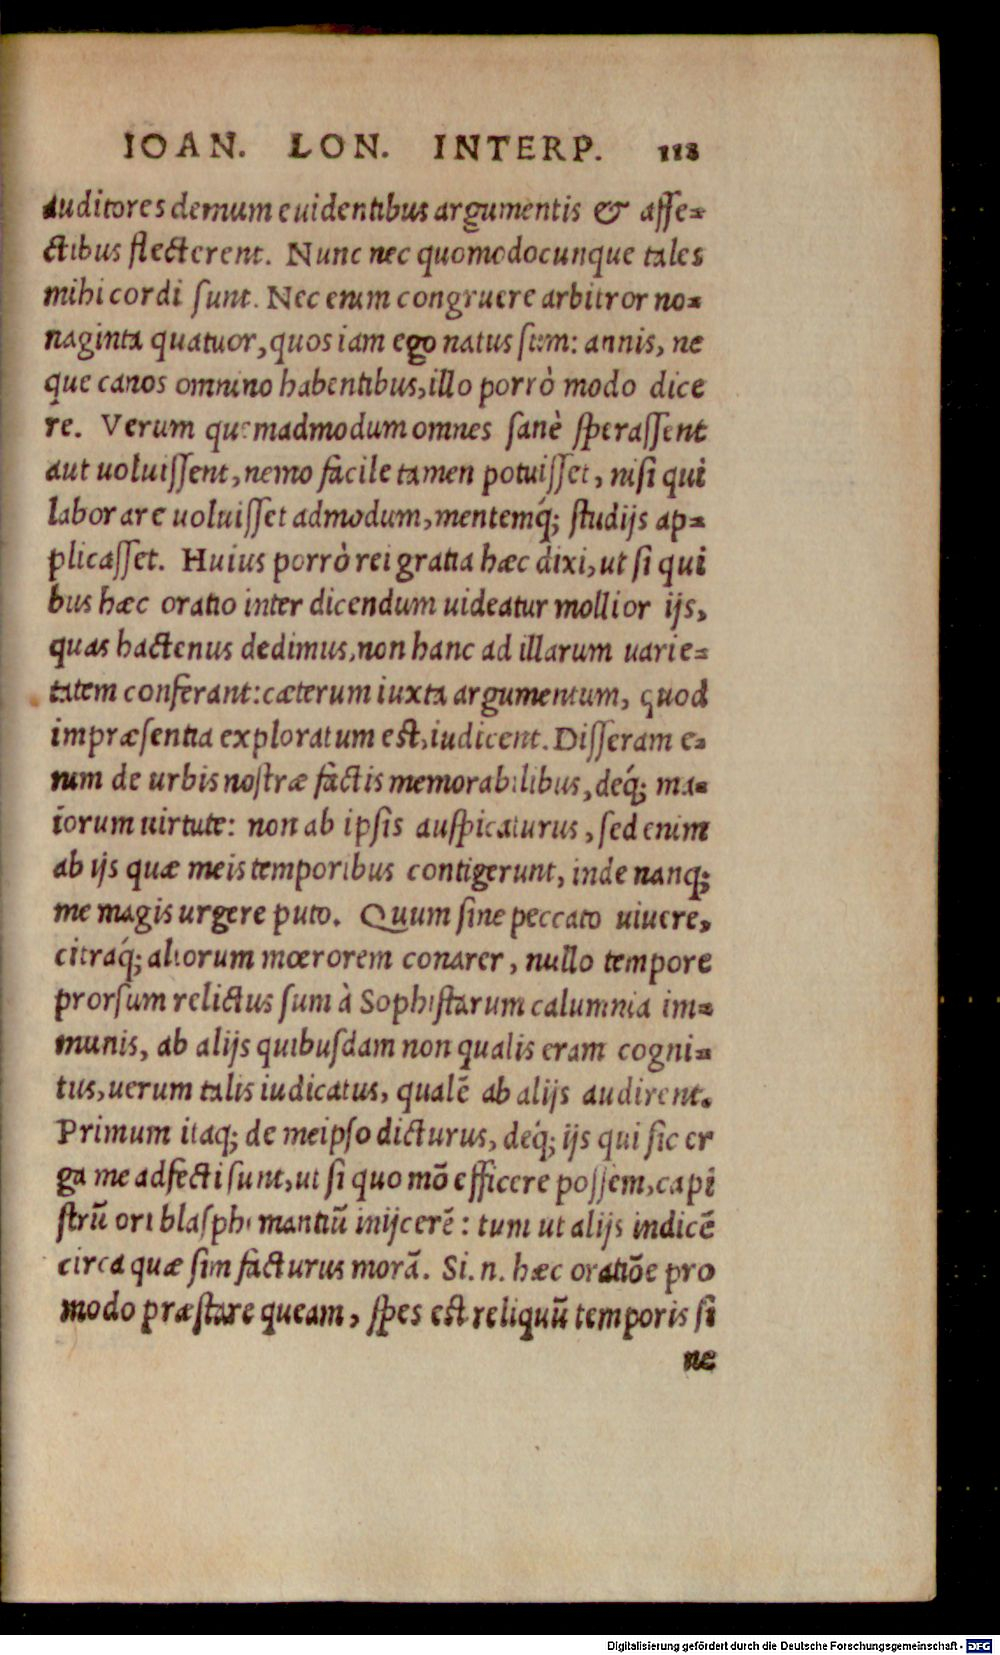 IOAN. LON. INTERP. 118
auditores demum euidentibus argumentis & affe-
ctibus flecterent. Nunc nec quomodocunque tales
mihi cordi sunt. Nec enim congruere arbitror no-
naginta quatuor, quos iam ego natus sum: annis, ne
que canos omnino habentibus, illo porrò modo dice
re. Verum quemadmodum omnes sanè sperassent
aut uoluissent, nemo facile tamen potuisset, nisi qui
laborare uoluisset admodum, mentemq́; studijs ap-
plicasset. Huius porrò rei gratia hæc dixi, ut si qui
bus hæc oratio inter dicendum uideatur mollior ijs,
quas hactenus dedimus, non hanc ad illarum uarie-
tatem conferant: cæterum iuxta argumentum, quod
impræsentia exploratum est, iudicent. Disseram e-
nim de urbis nostræ factis memorabilibus, deq́; ma-
iorum uirtute: non ab ipsis auspicaturus, sed enim
ab ijs quæ meis temporibus contigerunt, inde nanq;
me magis urgere puto. Quum sine peccato uiuere,
citraq́; aliorum mœrorem conarer, nullo tempore
prorsum relictus sum à Sophistarum calumnia im-
munis, ab alijs quibusdam non qualis eram cogni-
tus, uerum talis iudicatus, qualē ab alijs audirent.
Primum itaq; de meipso dicturus, deq́; ijs qui sic er
ga me adfecti sunt, ut si quo mō efficere possem, capi
strū ori blasphemantiū inijcerē: tum ut alijs indicē
circa quæ sim facturus morā. Si. n. hæc oratiōe pro
modo præstare queam, spes est reliquū temporis si
ne
Digitalisierung gefördert durch die Deutsche Forschungsgemeinschaft - DFG